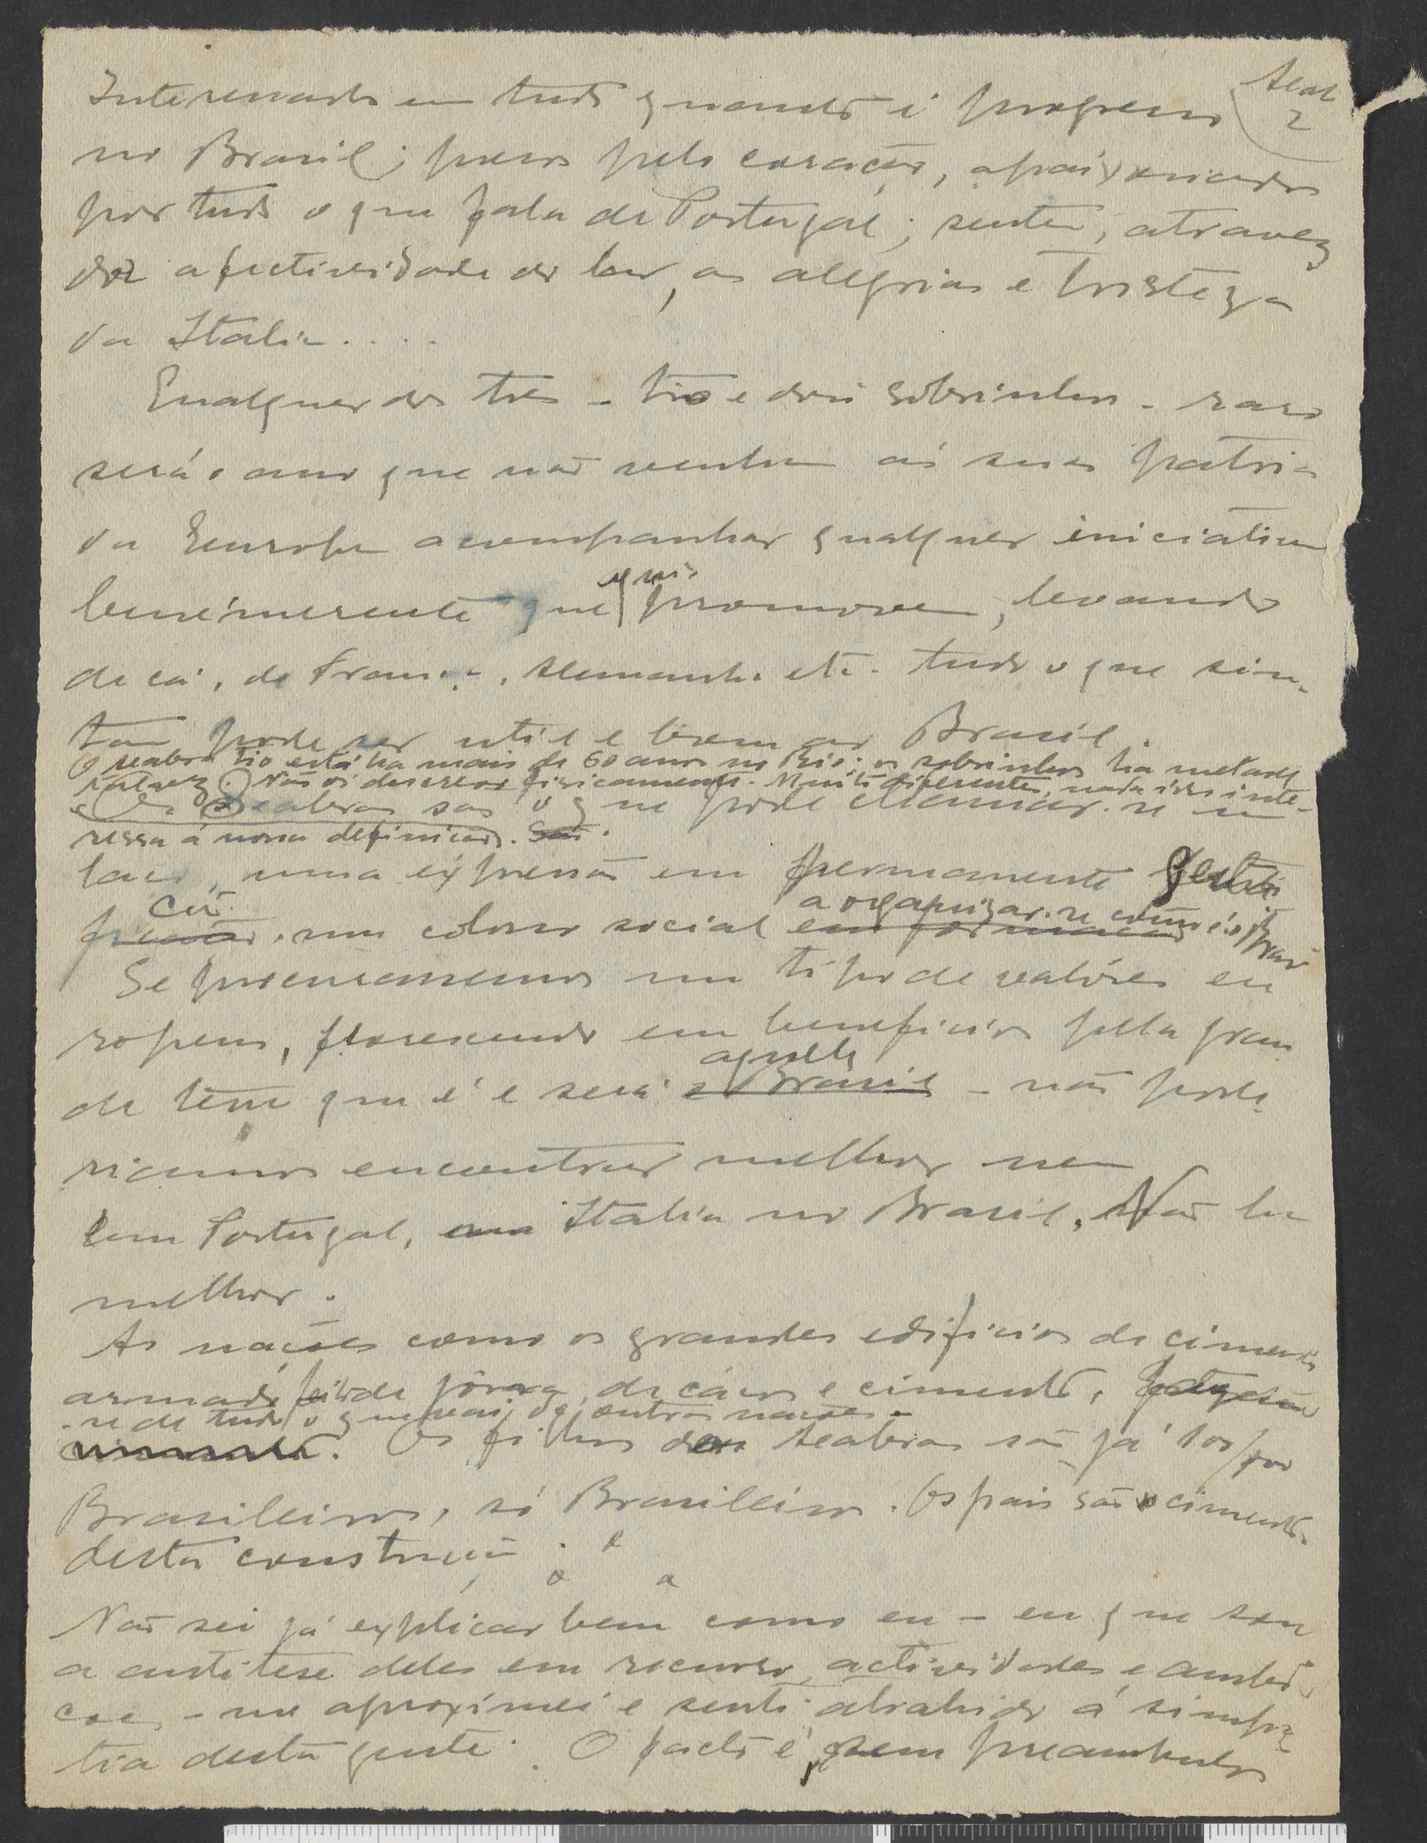 Seab
2
Interessado em tudo quanto é progresso
no Brasil; preso pelo coração, apaixonado
por tudo o que fala de Portugal; sente, atravez
da afectividade do lar, as alegrias e tristezas
da Italia....
Qualquer dos tres - tio e dois sobrinhos - raro
será o ano que não venham ás suas patrias
da Europa acompanhar qualquer iniciativa
benemerente que aqui promovem, levando
de cá, de França, Alemanha etc. tudo o que sin-
tam pode ser util e bom ao Brasil.
O seabra tio está ha mais de 60 anos no Rio; os sobrinhos ha metade
talvez. Não os descrevo fisicamente. Muito diferentes, nada isso inte-
Os Seabras são o que pode chamar-se um
ressa á nossa definição. São.
laço, uma expressão em permanente
cia. um colosso social a organizar-se como é o Bras
Se procurassemos um tipo de valôres eu
ropeus, florescendo em beneficios pela gran
de terra que é e será aquella o Brasil - não pode
riamos encontrar melhor nem
em Portugal, Italia no Brasil. Não ha
melhor.
As nações como os grandes edificios de cimento
armado de de e cimento,
-se de tudo o que vai outras nações.
Os filhos dos Seabras são já todos
Brasileiros, só Brasileiros. Os pais são o cimento
desta construção.
Não sei já explicar bem como eu - eu que sou
a antitese deles em recurso, actividades e ambi
ções - me aproximei e senti atrahido á simpa
tia desta gente. O facto é, sem preambulos